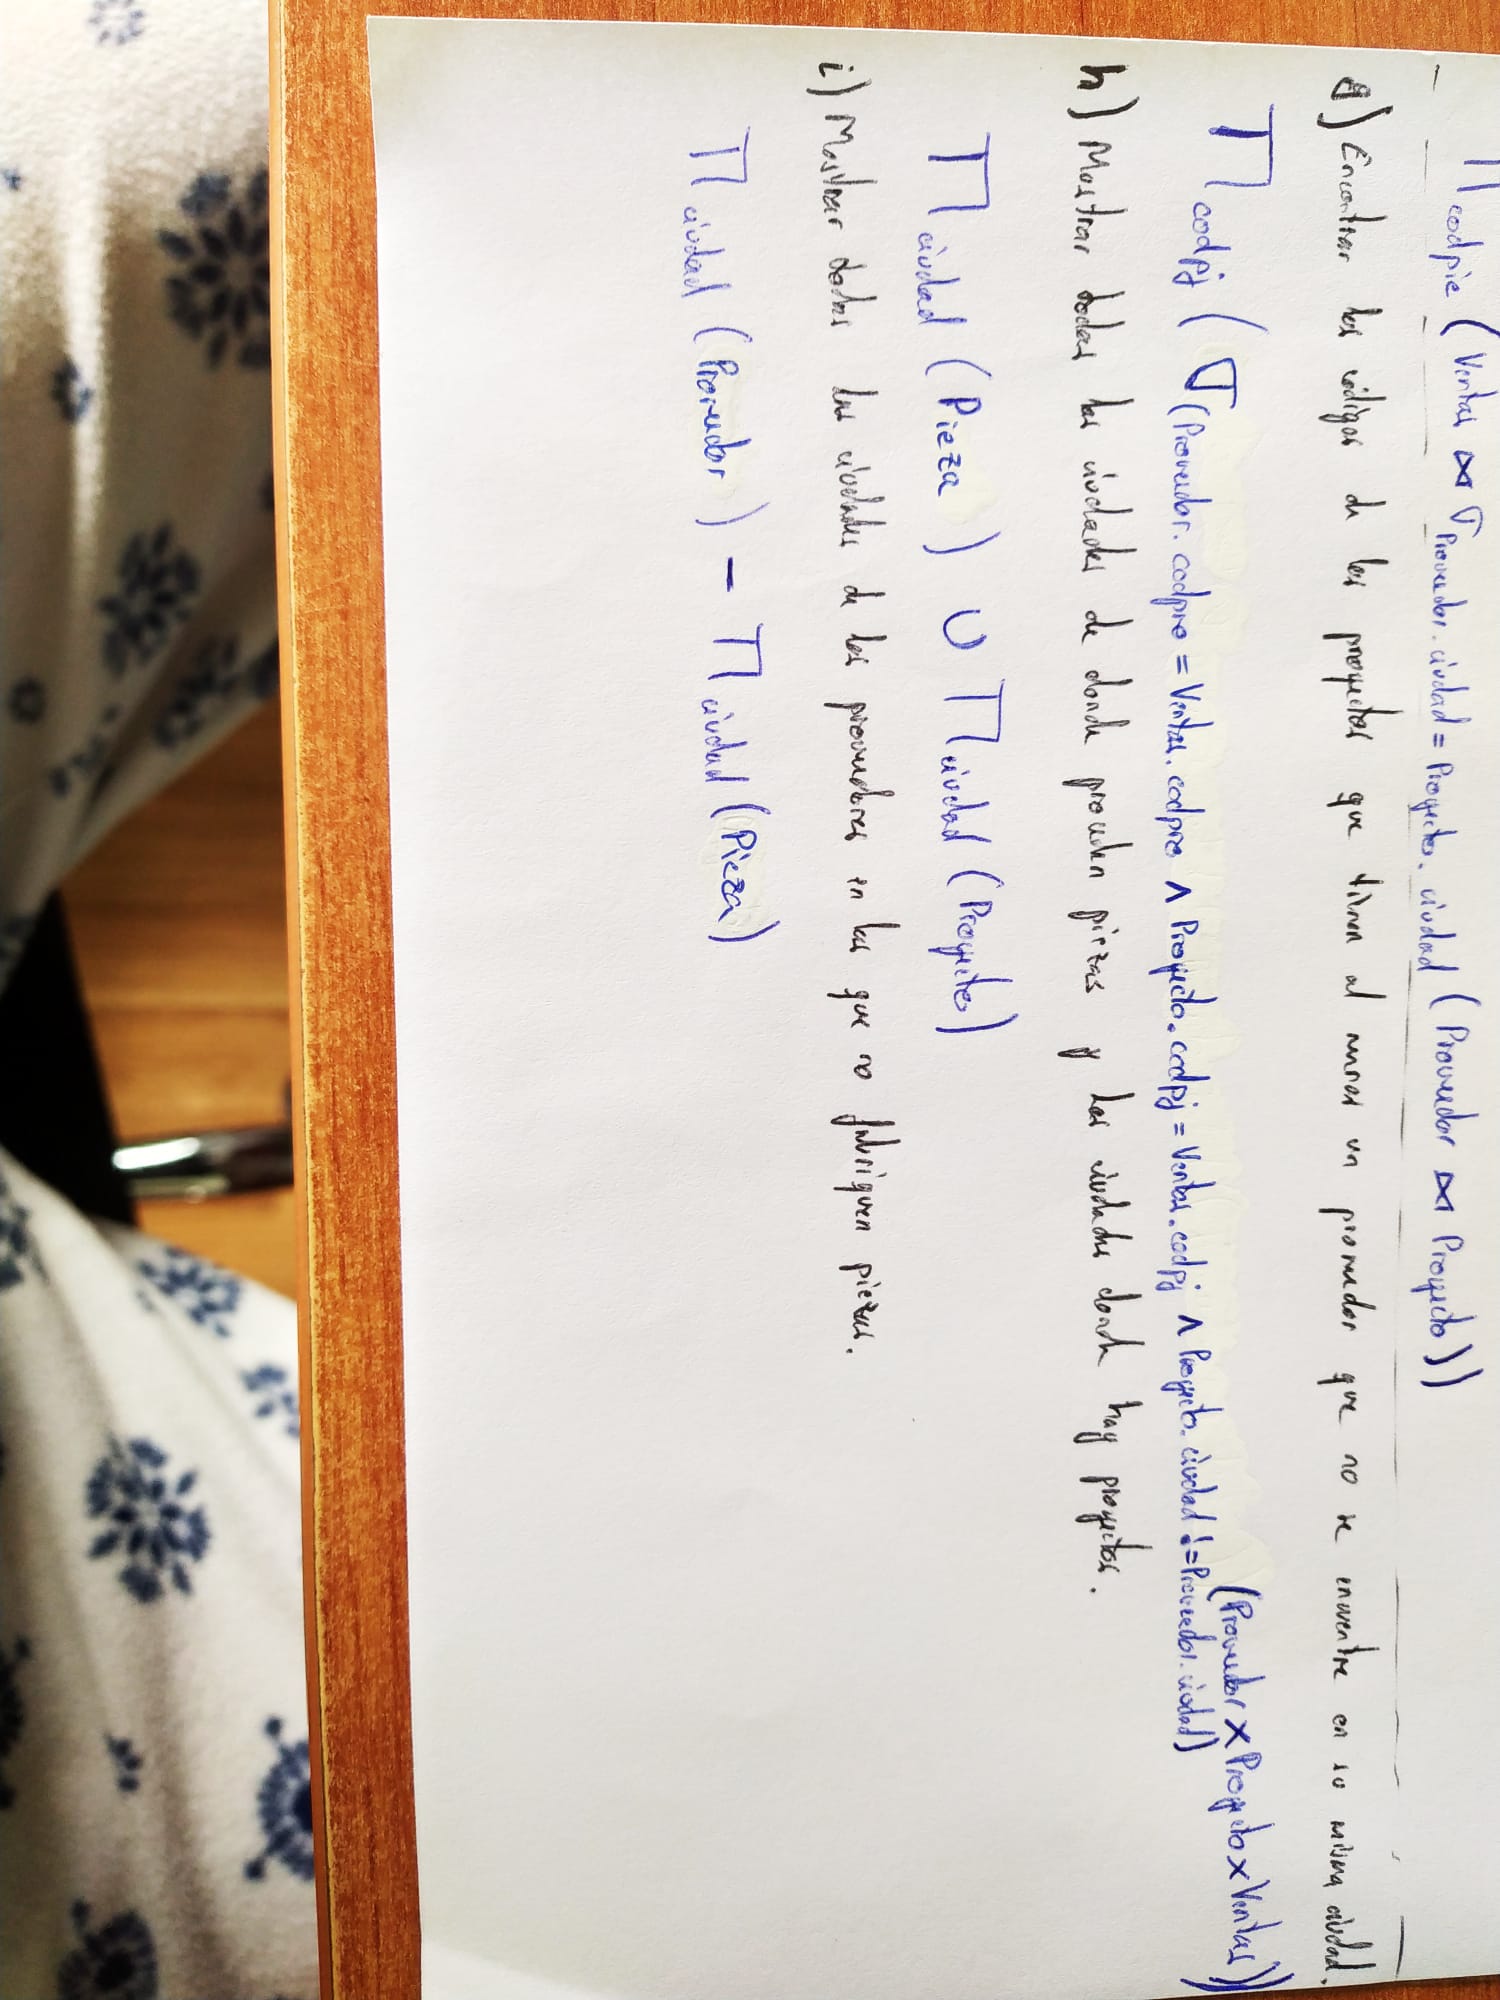 Π codpie ( Ventas ⋈ σ Proveedor.ciudad = Proyecto.ciudad ( Proveedor ⋈ Proyecto ))
g) Encontrar los códigos de los proyectos que tienen al menos un proveedor que no se encuentre en su misma ciudad.
Π codpj ( σ (Proveedor.codpro = Ventas.codpro ∧ Proyecto.codpj = Ventas.codpj ∧ Proyecto.ciudad != Proveedor.ciudad) (Proveedor × Proyecto × Ventas))
h) Mostrar todas las ciudades de donde proceden piezas y las ciudades donde hay proyectos.
Π ciudad ( Pieza ) ∪ Π ciudad ( Proyecto )
i) Mostrar todas las ciudades de los proveedores en las que no fabriquen piezas.
Π ciudad ( Proveedor ) − Π ciudad ( Pieza )